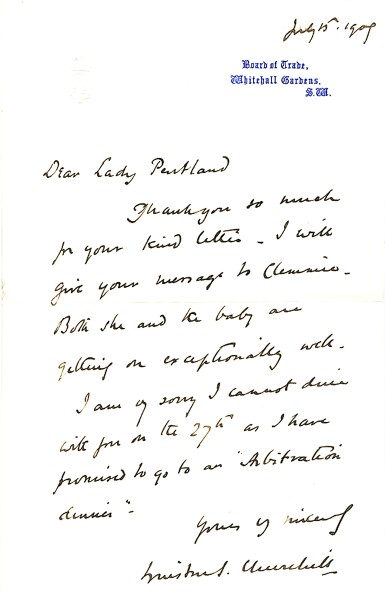 July 15. 1909
Board of Trade,
Whitehall Gardens,
S.W.
Dear Lady Pentland
Thank you so much
for your kind letter. I will
give your message to Clemmie.
Both she and the baby are
getting on exceptionally well.
I am vy sorry I cannot dine
with you on the 27th as I have
promised to go to an "Arbitration
dinner".
Yours vy sincerely
Winston S. Churchill